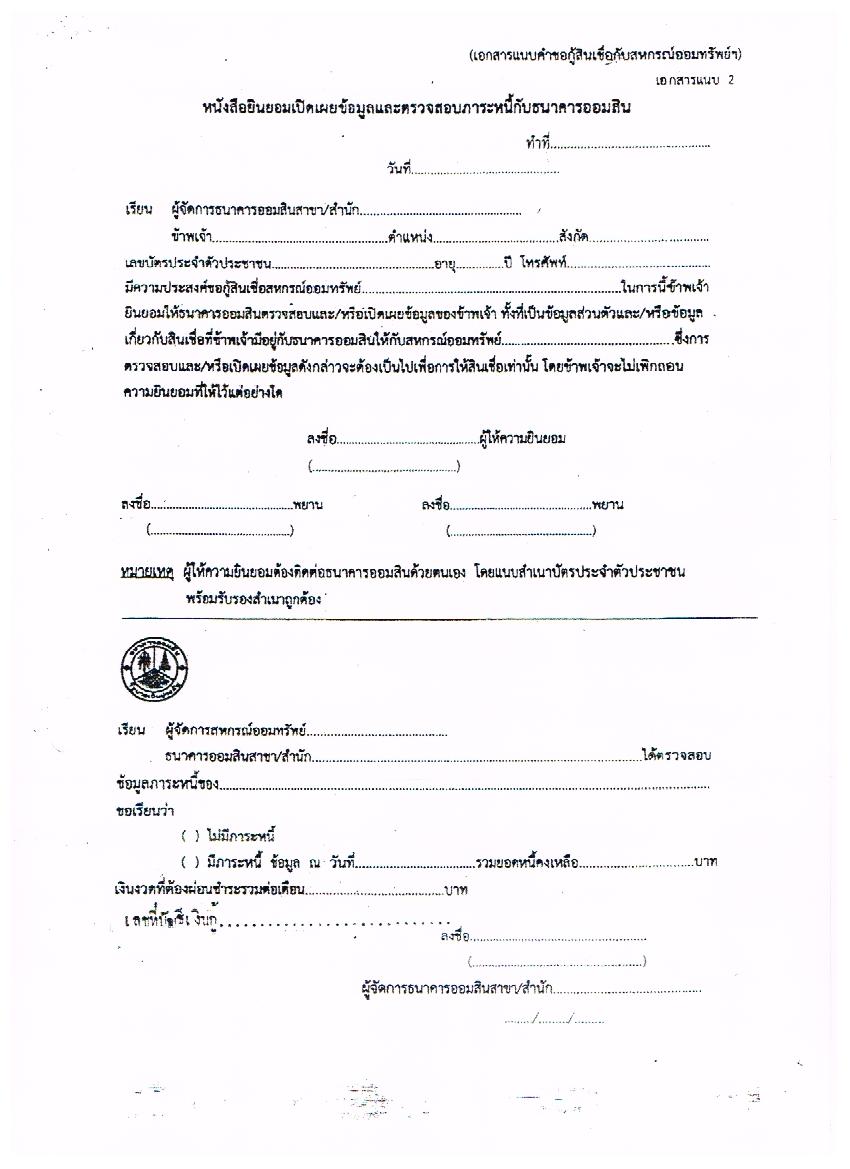 (เอกสารแนบคำขอกู้สินเชื่อกับสหกรณ์ออมทรัพย์ฯ)
เอกสารแนบ 2
หนังสือยินยอมเปิดเผยข้อมูลและตรวจสอบภาระหนี้กับธนาคารออมสิน
ทำที่..............................................
วันที่..........................................
เรียน ผู้จัดการธนาคารออมสินสาขา/สำนัก..............................................
ข้าพเจ้า..................................................ตำแหน่ง....................................สังกัด..................................
เลขบัตรประจำตัวประชาชน..............................................อายุ.............ปี โทรศัพท์.........................................
มีความประสงค์ขอกู้สินเชื่อสหกรณ์ออมทรัพย์..........................................................................ในการนี้ข้าพเจ้า
ยินยอมให้ธนาคารออมสินตรวจสอบและ/หรือเปิดเผยข้อมูลของข้าพเจ้า ทั้งที่เป็นข้อมูลส่วนตัวและ/หรือข้อมูล
เกี่ยวกับสินเชื่อที่ข้าพเจ้ามีอยู่กับธนาคารออมสินให้กับสหกรณ์ออมทรัพย์.................................................ซึ่งการ
ตรวจสอบและ/หรือเปิดเผยข้อมูลดังกล่าวจะต้องเป็นไปเพื่อการให้สินเชื่อเท่านั้น โดยข้าพเจ้าจะไม่เพิกถอน
ความยินยอมที่ให้ไว้แต่อย่างใด
ลงชื่อ.........................................ผู้ให้ความยินยอม
(.........................................)
ลงชื่อ.........................................พยาน ลงชื่อ.........................................พยาน
(.........................................) (.........................................)
หมายเหตุ ผู้ให้ความยินยอมต้องติดต่อธนาคารออมสินด้วยตนเอง โดยแนบสำเนาบัตรประจำตัวประชาชน
พร้อมรับรองสำเนาถูกต้อง
ธนาคารออมสิน
เรียน ผู้จัดการสหกรณ์ออมทรัพย์.........................................
ธนาคารออมสินสาขา/สำนัก..............................................................................................ได้ตรวจสอบ
ข้อมูลภาระหนี้ของ............................................................................................................................................
ขอเรียนว่า
( ) ไม่มีภาระหนี้
( ) มีภาระหนี้ ข้อมูล ณ วันที่..................................รวมยอดหนี้คงเหลือ.................................บาท
เงินงวดที่ต้องผ่อนชำระรวมต่อเดือน........................................บาท
เลขที่บัญชีเงินกู้............................
ลงชื่อ..................................................
(..................................................)
ผู้จัดการธนาคารออมสินสาขา/สำนัก..........................................
......../........./.........